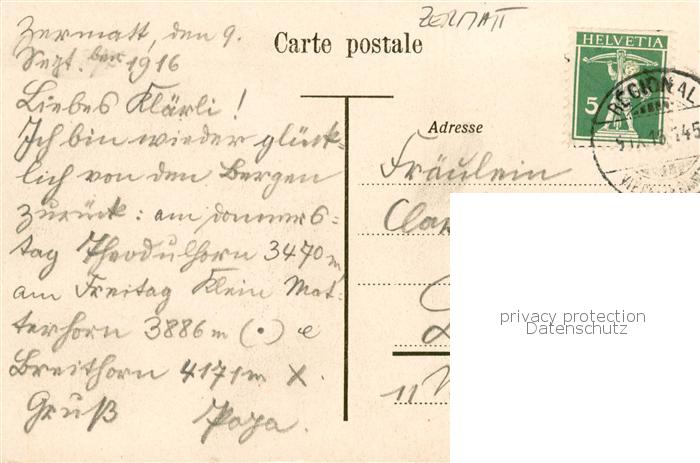 Zermatt, den 9.
Sept. ber 1916
Liebes Klärli!
Ich bin wieder glück=
lich von den Bergen
zurück: am donners=
tag Theodulhorn 3470 m
am Freitag Klein Mat=
terhorn 3886 m (•) e
Breithorn 4171 m X.
Gruß Papa.
ZERMATT
Carte postale
HELVETIA
5
REGIONAL
Adresse
Fräulein
privacy protection
Datenschutz